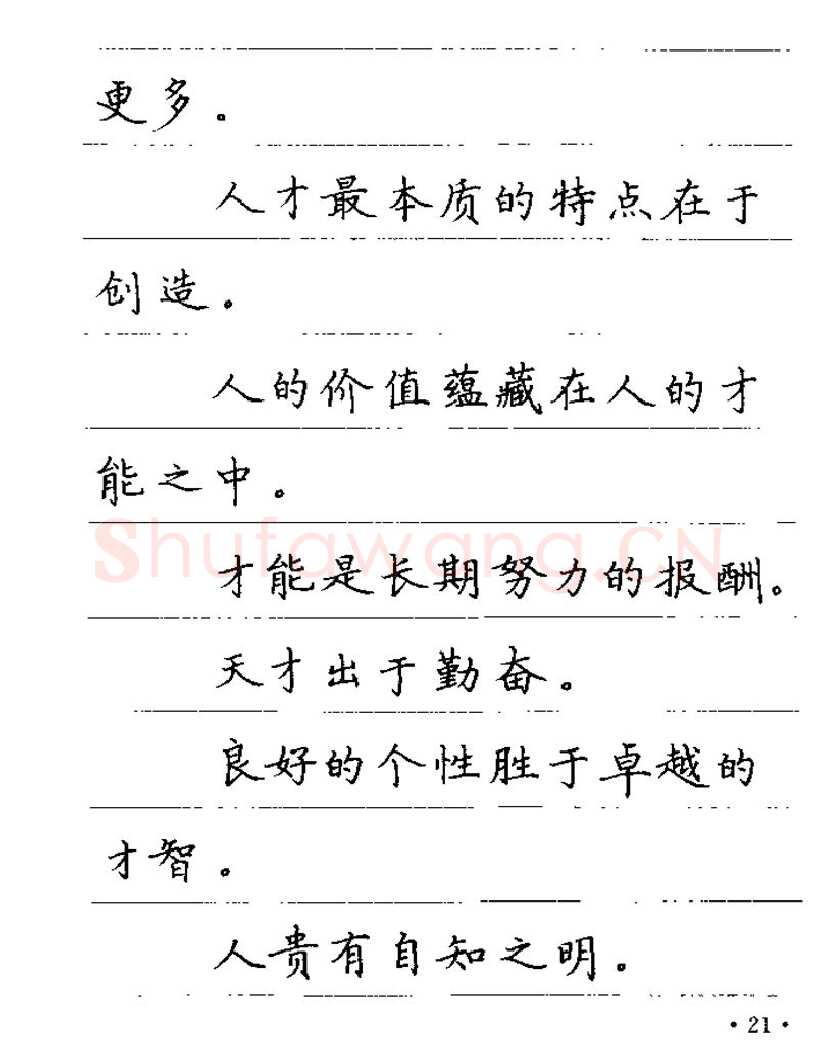 更多。
人才最本质的特点在于
创造。
人的价值蕴藏在人的才
能之中。
Shufawang.CN
才能是长期努力的报酬。
天才出于勤奋。
良好的个性胜于卓越的
才智。
人贵有自知之明。
·21·